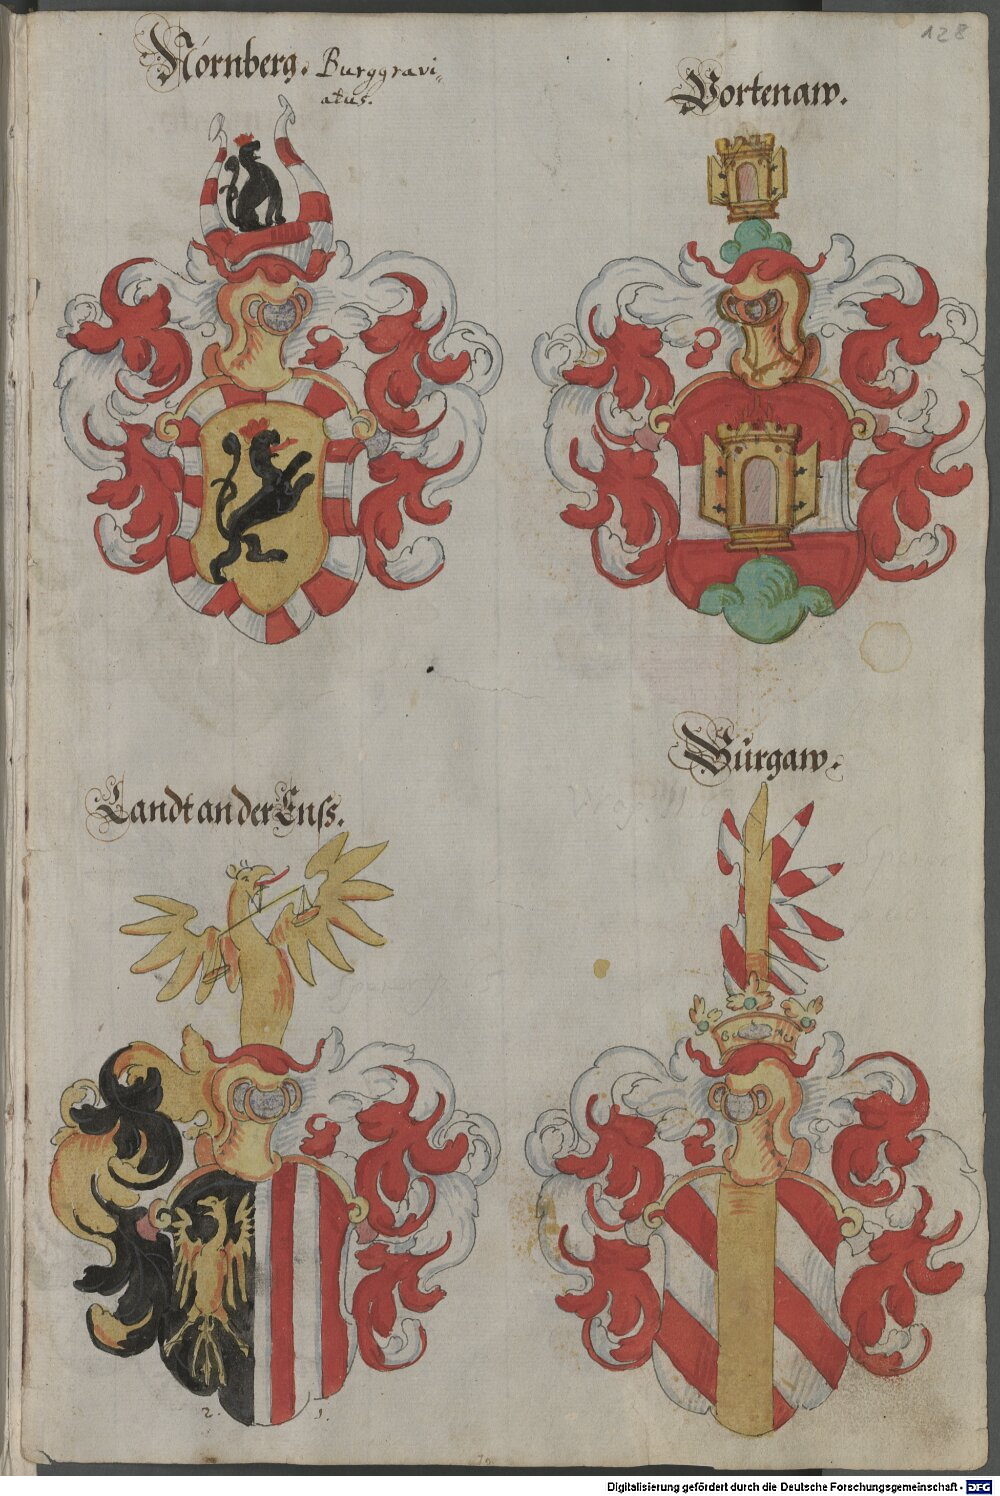 128
Nörnberg. Burggravi-
atus.
Portenaw.
Landt an der Enſs.
Bürgaw.
2. 1.
Digitalisierung gefördert durch die Deutsche Forschungsgemeinschaft - DFG